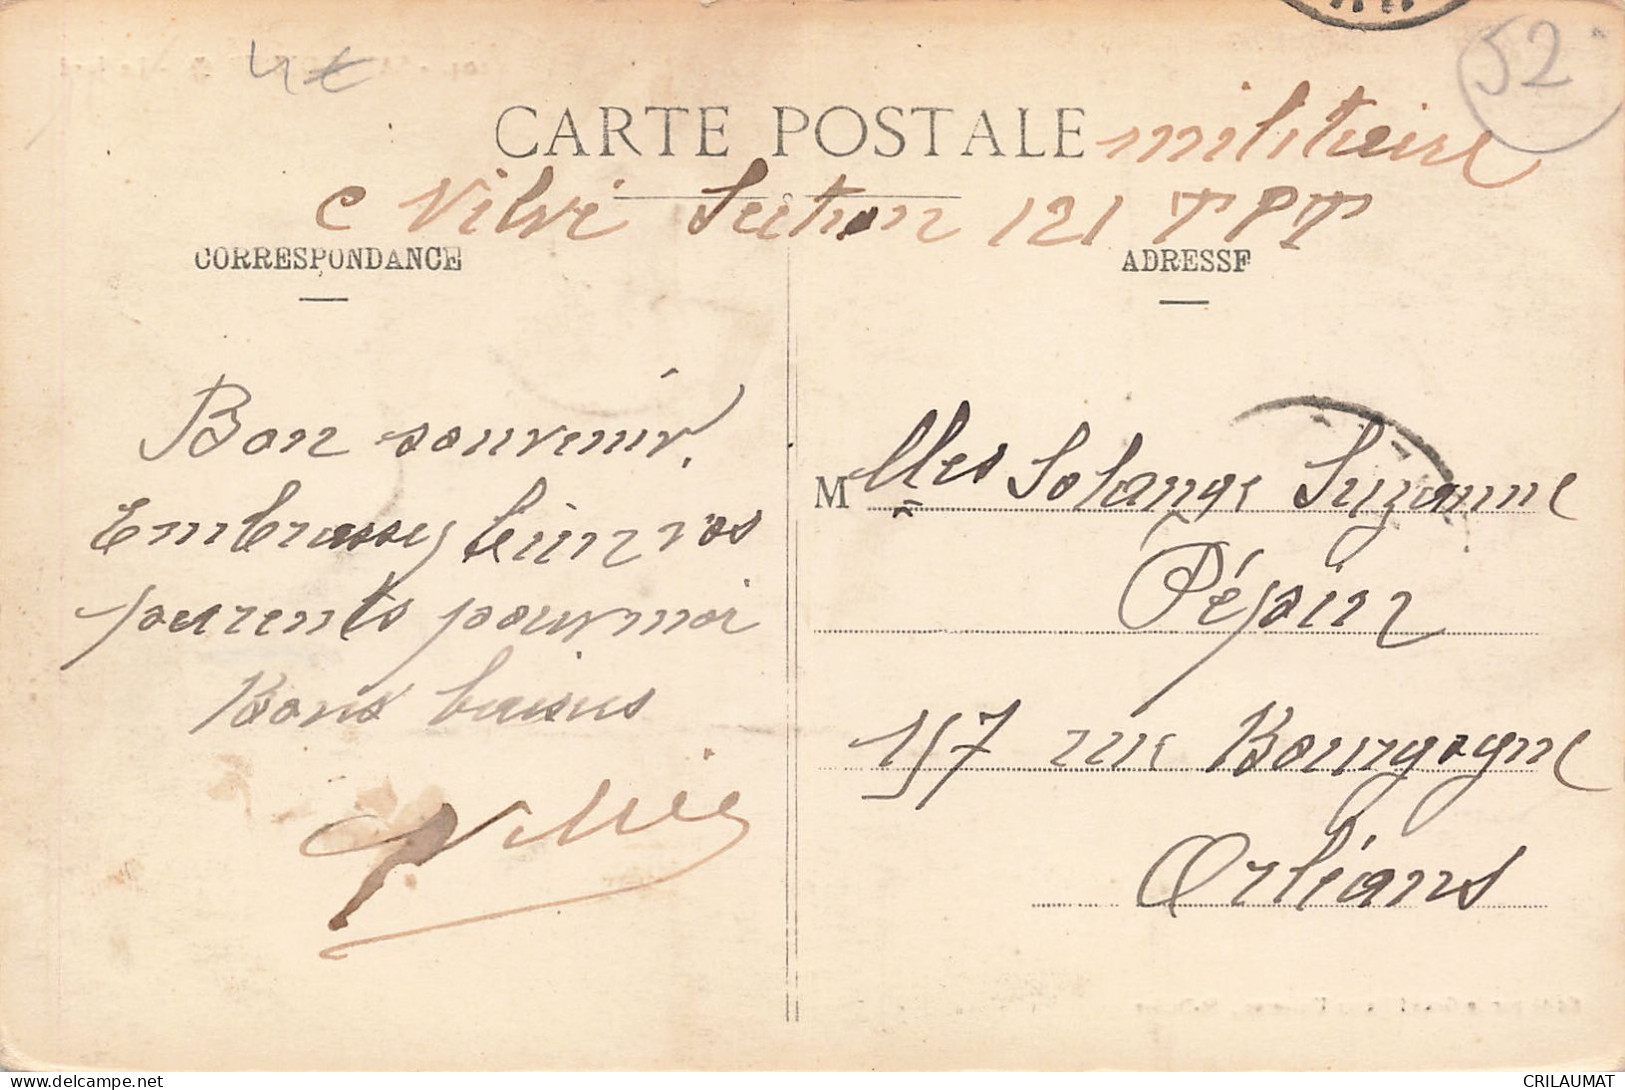 52
4€
CARTE POSTALE militaire
C Vilvi Section 121 TPT
CORRESPONDANCE
ADRESSE
Bon souvenir.
Embrassez bien vos
parents pour moi
Bons baisers
M lles Solange Suzanne
Pépin
157 rue Bourgogne
Orléans
CRILAUMAT